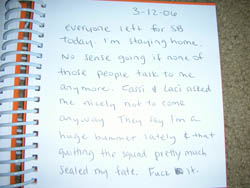 3-12-06
everyone left for SB
today. I'm staying home.
No sense going if none of
those people task to me
anymore. Cassi & Laci asked
me nicely not to come
anyway. They say I'm a
huge bummer lately & that
quitting the squad pretty much
sealed my fate. Fuck it.